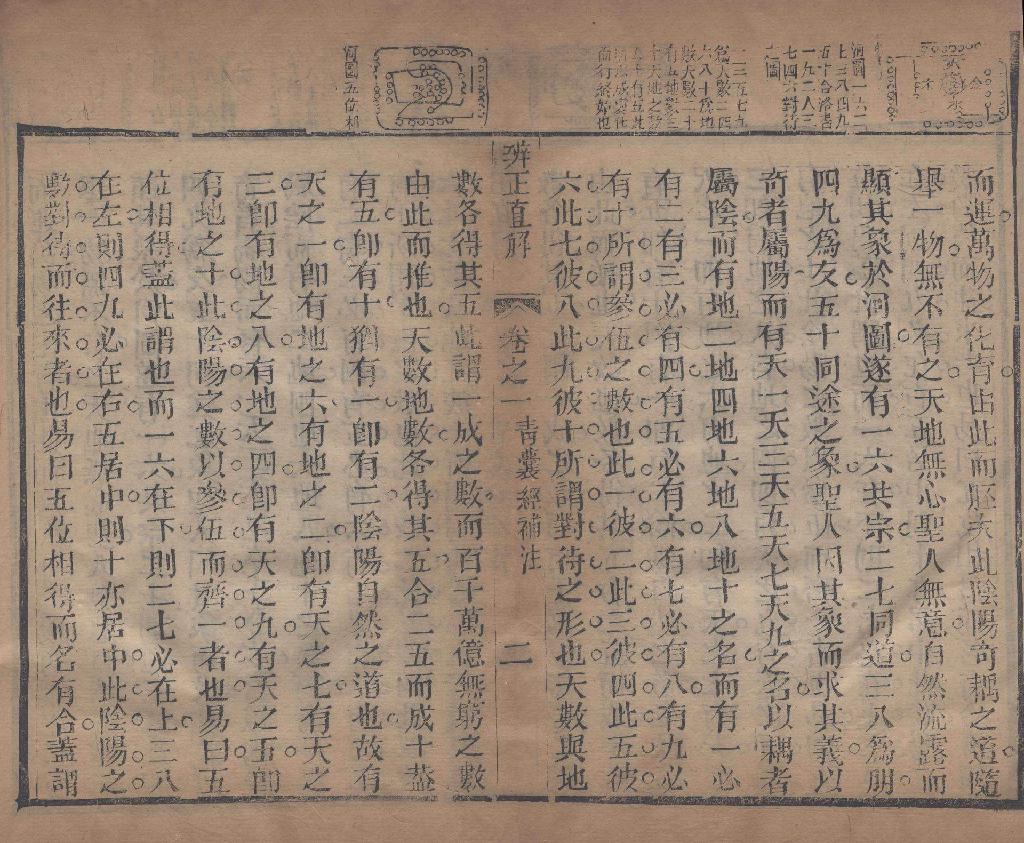 河圖一六二
七三八四九
五十合洛書
一九二八三
七四六對待
之圖
一三五七九
爲天數二四
六八十爲地
數天數二十
有五地數三
十天地之數
五十有五此
所以成變化
而行鬼神也
河圖五位相
而運萬物之化育由此而胚夫此陰陽奇耦之道隨
舉一物無不有之天地無心聖人無意自然流露而
顯其象於河圖遂有一六共宗二七同道三八爲朋
四九爲友五十同途之象聖人因其象而求其義以
奇者屬陽而有天一天三天五天七天九之名以耦者
屬陰而有地二地四地六地八地十之名而有一必
有二有三必有四有五必有六有七必有八有九必
有十所謂參伍之數也此一彼二此三彼四此五彼
六此七彼八此九彼十所謂對待之形也天數與地
辨正直解 卷之一 青囊經補注 二
數各得其五此謂一成之數而百千萬億無窮之數
由此而推也天數地數各得其五合二五而成十蓋
有五卽有十猶有一卽有二陰陽自然之道也故有
天之一卽有地之六有地之二卽有天之七有天之
三卽有地之八有地之四卽有天之九有天之五卽
有地之十此陰陽之數以參伍而齊一者也易曰五
位相得蓋此謂也而一六在下則二七必在上三八
在左則四九必在右五居中則十亦居中此陰陽之
數對待而往來者也易曰五位相得而各有合蓋謂